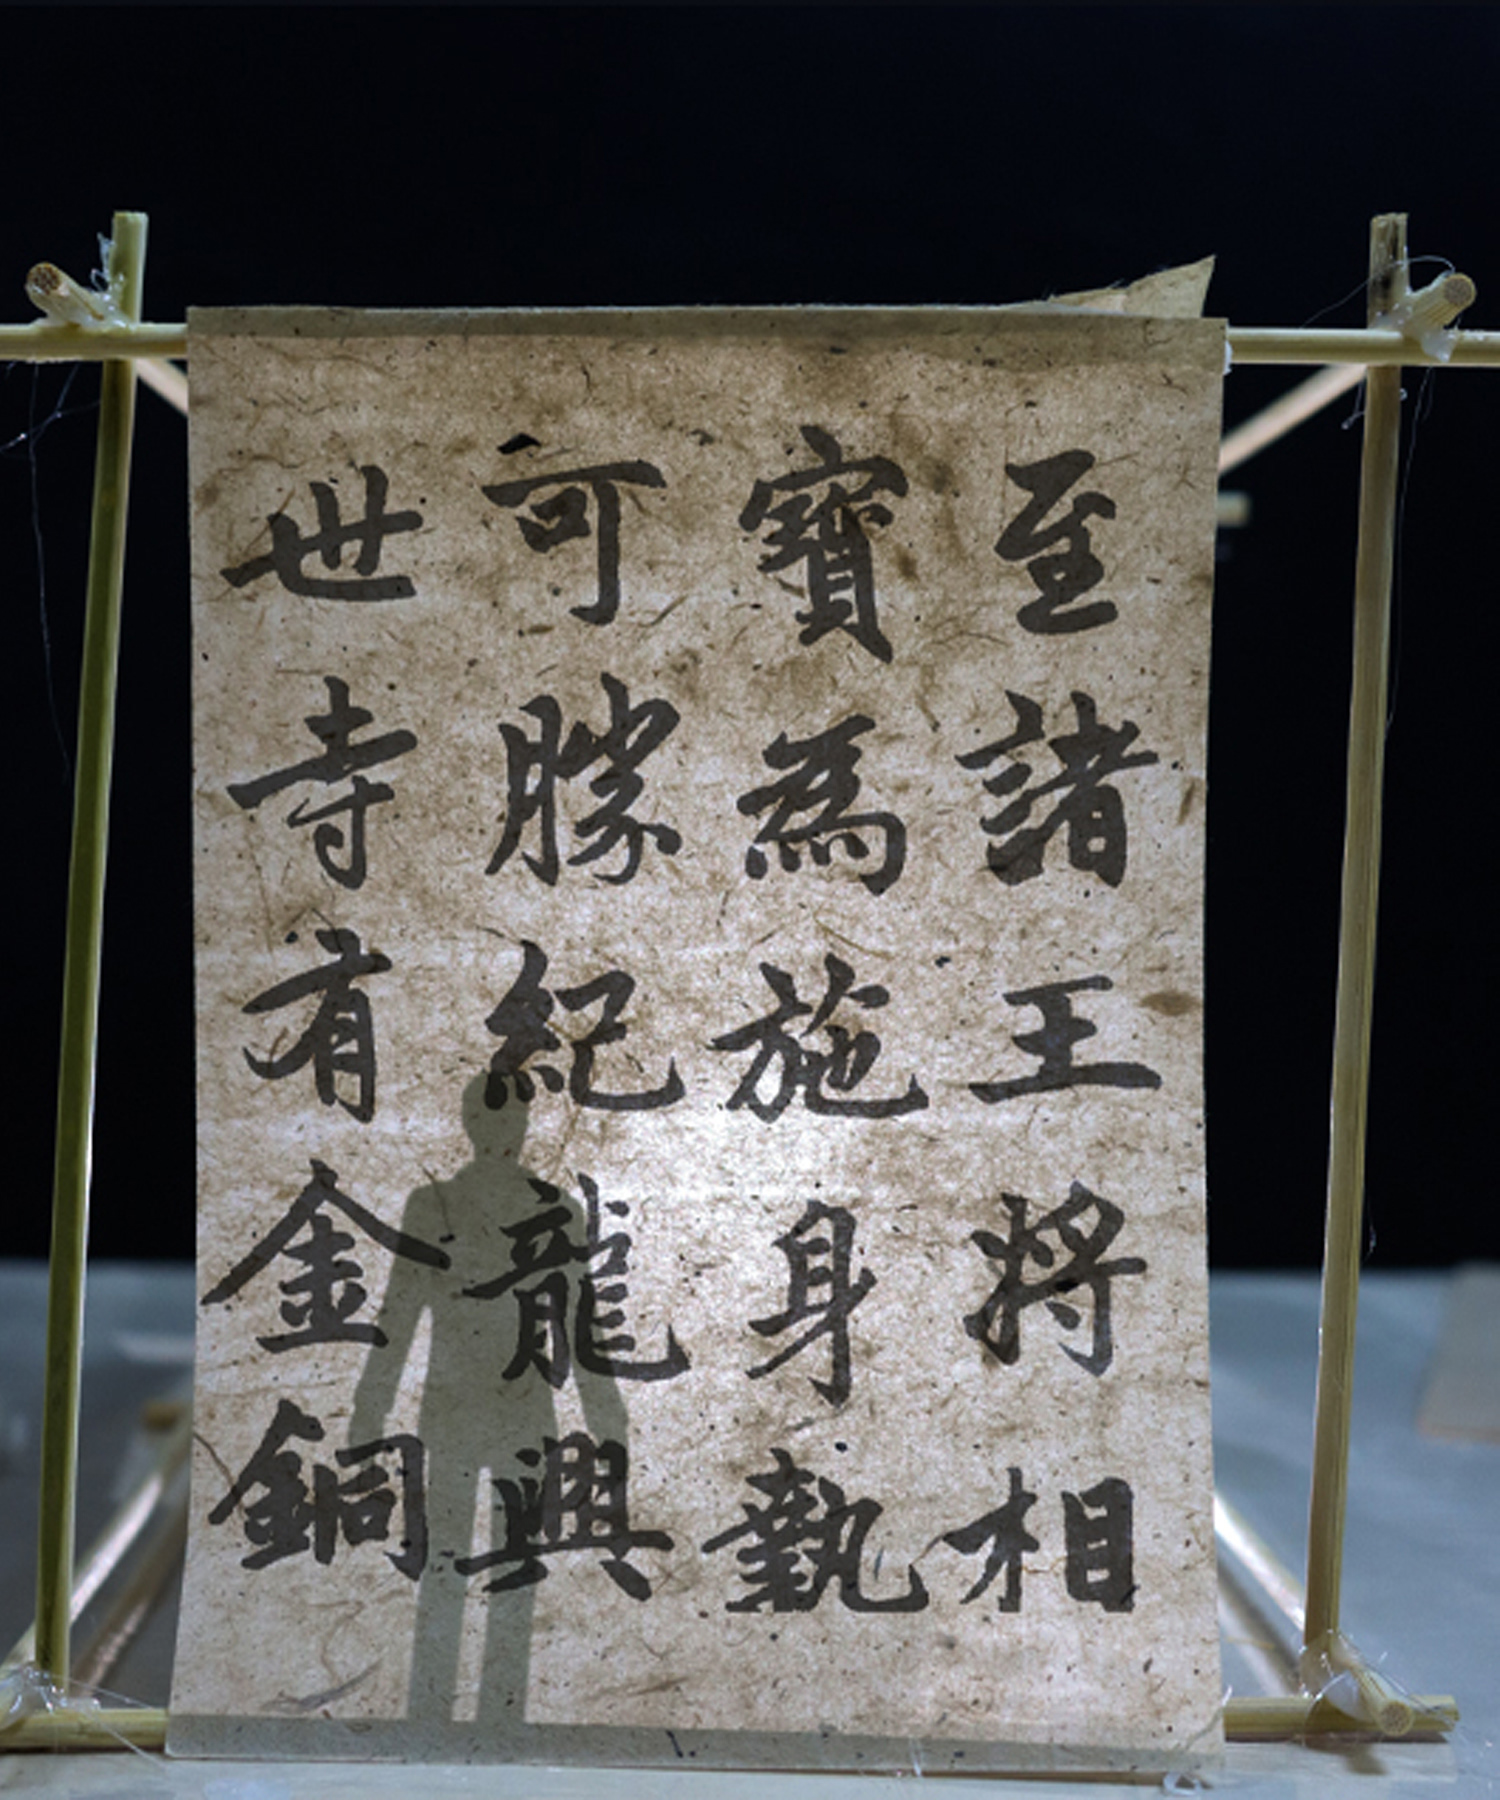 至諸王將相
寶為施身執
可勝紀龍興
世寺有金銅